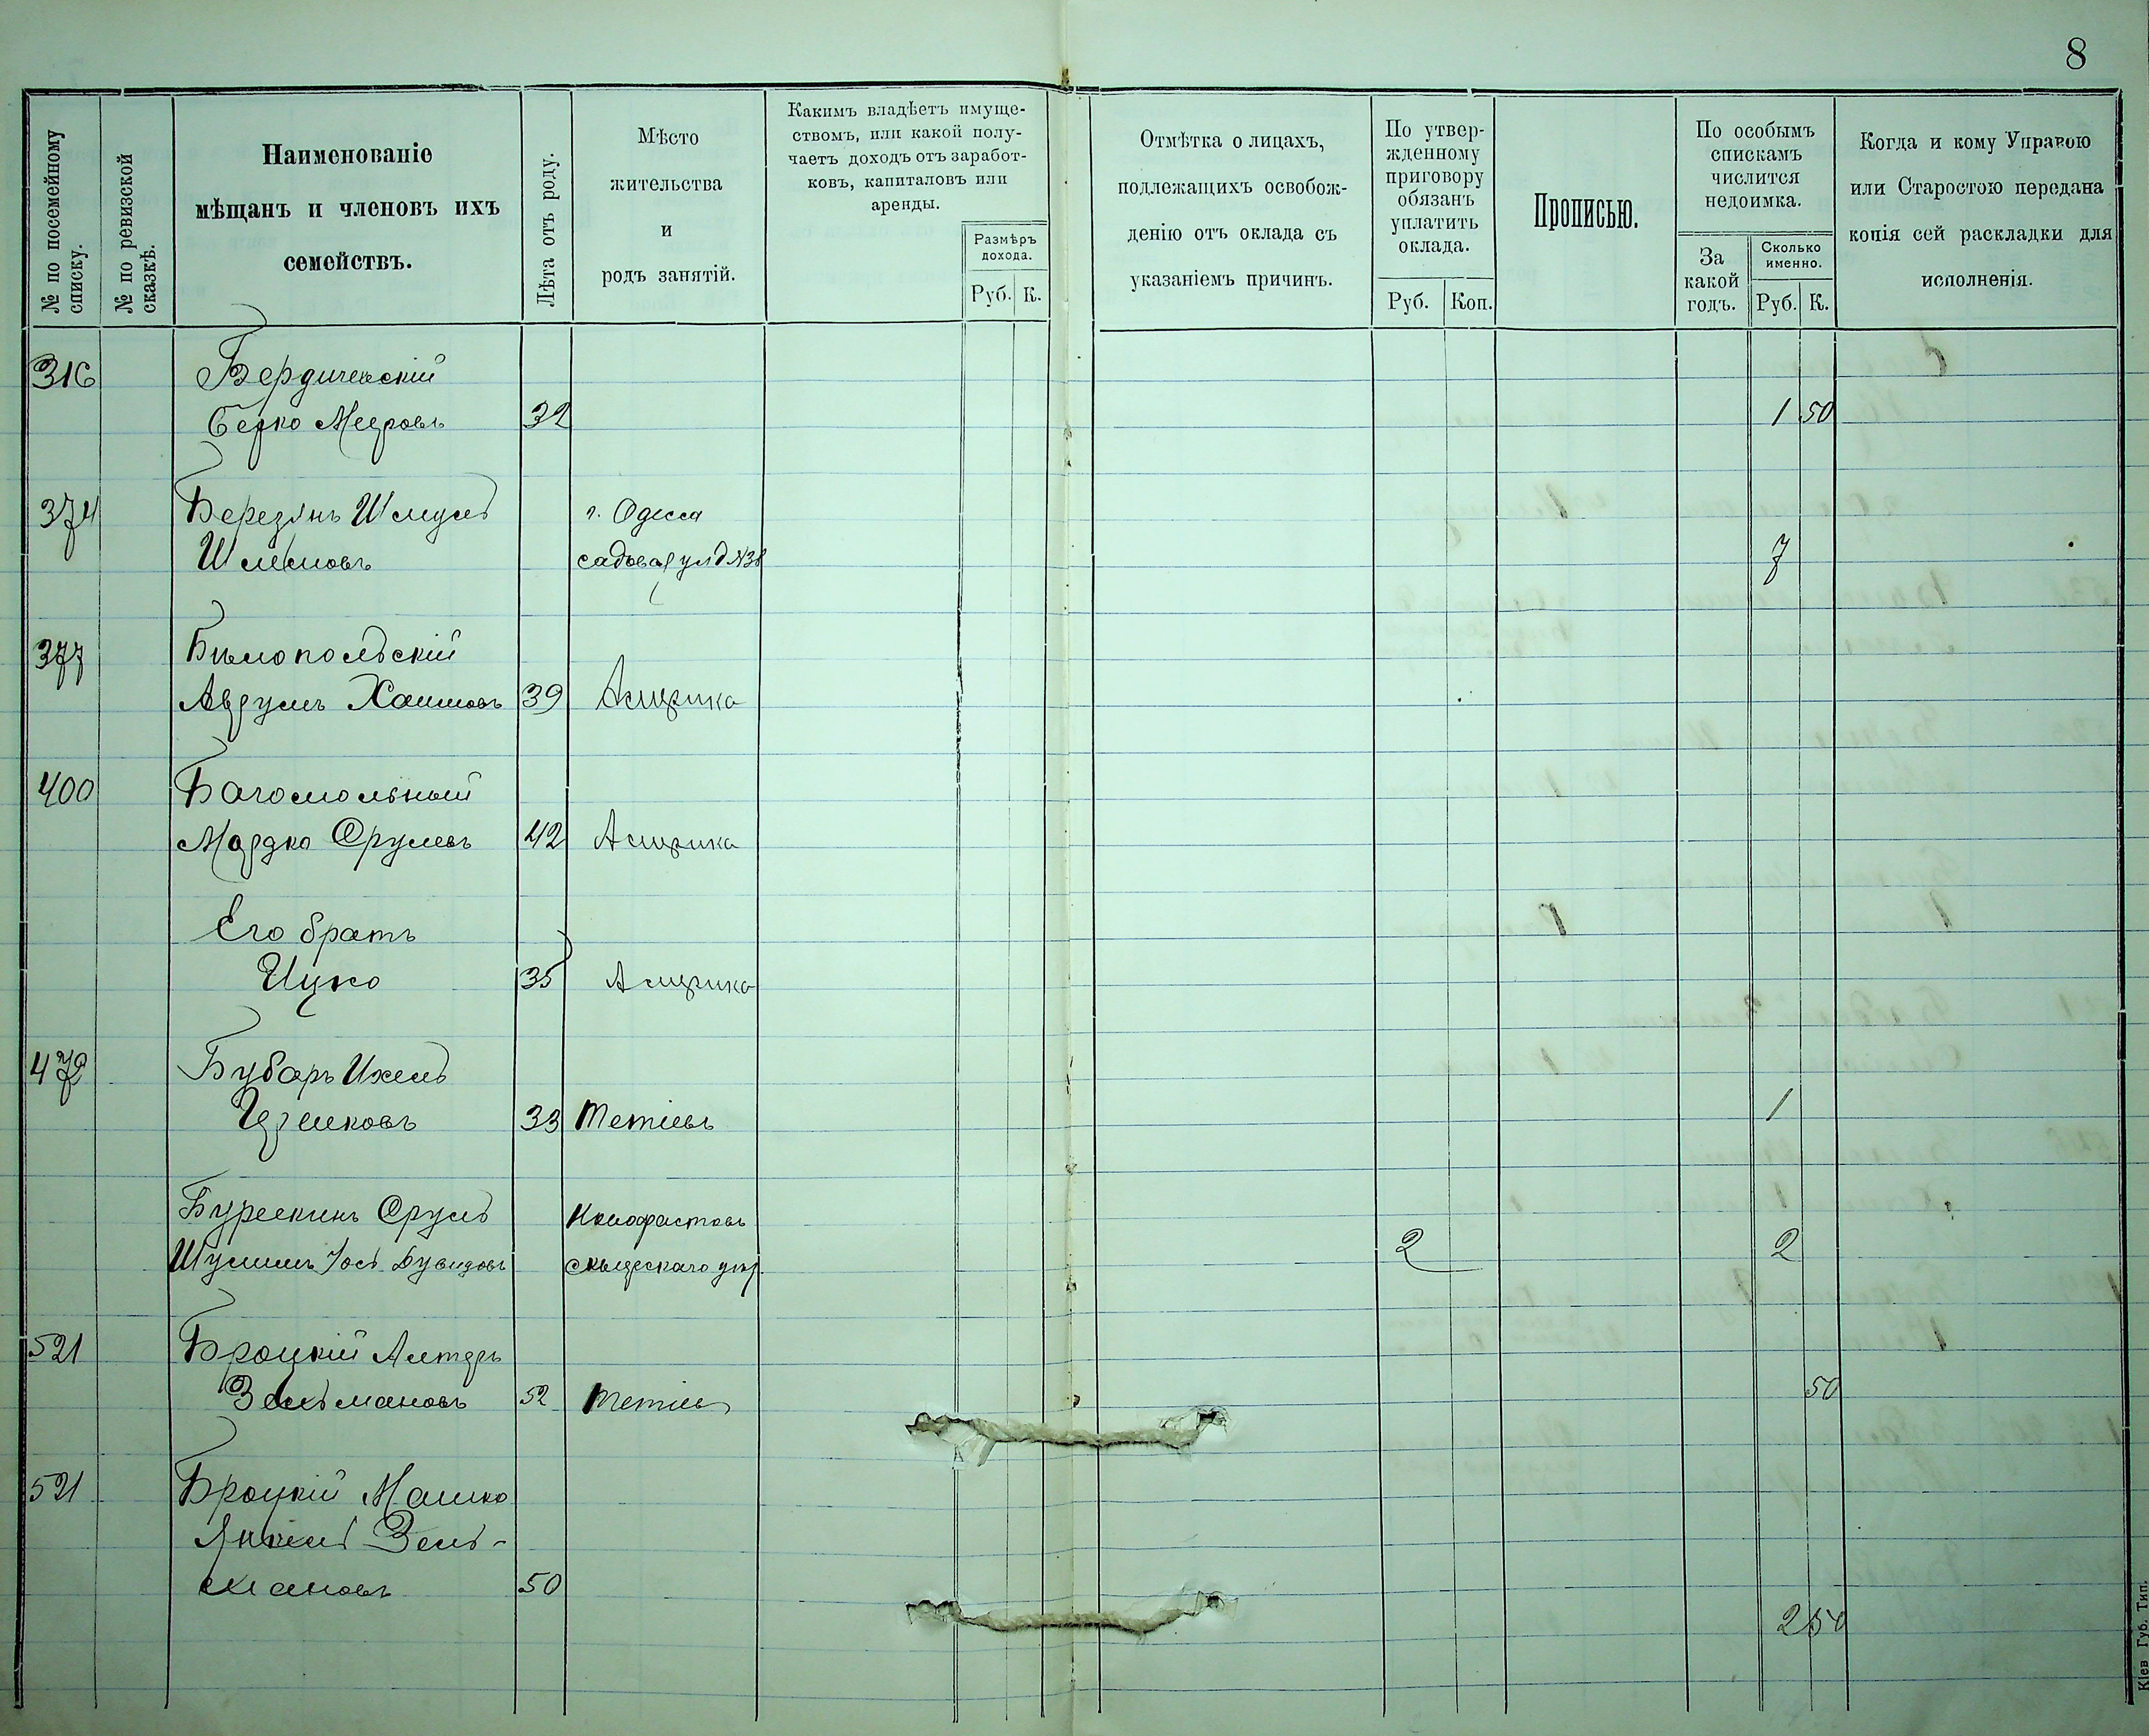 8
№ по посемейному списку.
№ по ревизской сказкѣ.
Наименованіе
мѣщанъ и членовъ ихъ
семействъ.
Лѣта отъ роду.
Мѣсто
жительства
и
родъ занятій.
Какимъ владѣетъ имуще-
ствомъ, или какой полу-
чаетъ доходъ отъ заработ-
ковъ, капиталовъ или
аренды.
Размѣръ
дохода.
Руб. К.
Отмѣтка о лицахъ,
подлежащихъ освобож-
денію отъ оклада съ
указаніемъ причинъ.
По утвер-
жденному
приговору
обязанъ
уплатить
оклада.
Руб. Коп.
Прописью.
По особымъ
спискамъ
числится
недоимка.
За
какой
годъ.
Сколько
именно.
Руб. К.
Когда и кому Управою
или Старостою передана
копія сей раскладки для
исполненія.
316 Бердичевскій
Берко Мееровъ 32 1 50
374 Березинъ Шмуль г. Одесса
Шлемовъ садовая ул д №38 7
377 Билопольскій
Аврумъ Хаимовъ 39 Америка
400 Багомольный
Мордко Срулевъ 42 Америка
Его братъ
Ицко 35 Америка
472 Бубарь Ихель
33 Тетіевъ 1
Сруль
Шулимъ Іось Дувидовъ 2 2
521 Броцкій Алтеръ
Зельмановъ 52 Тетіев 50
521 Броцкій Машко
Янкель Зель-
мановъ 50
2 50
Кіев Губ. Тип.